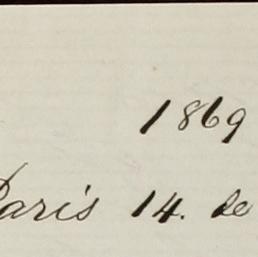 1869
Paris 14. de